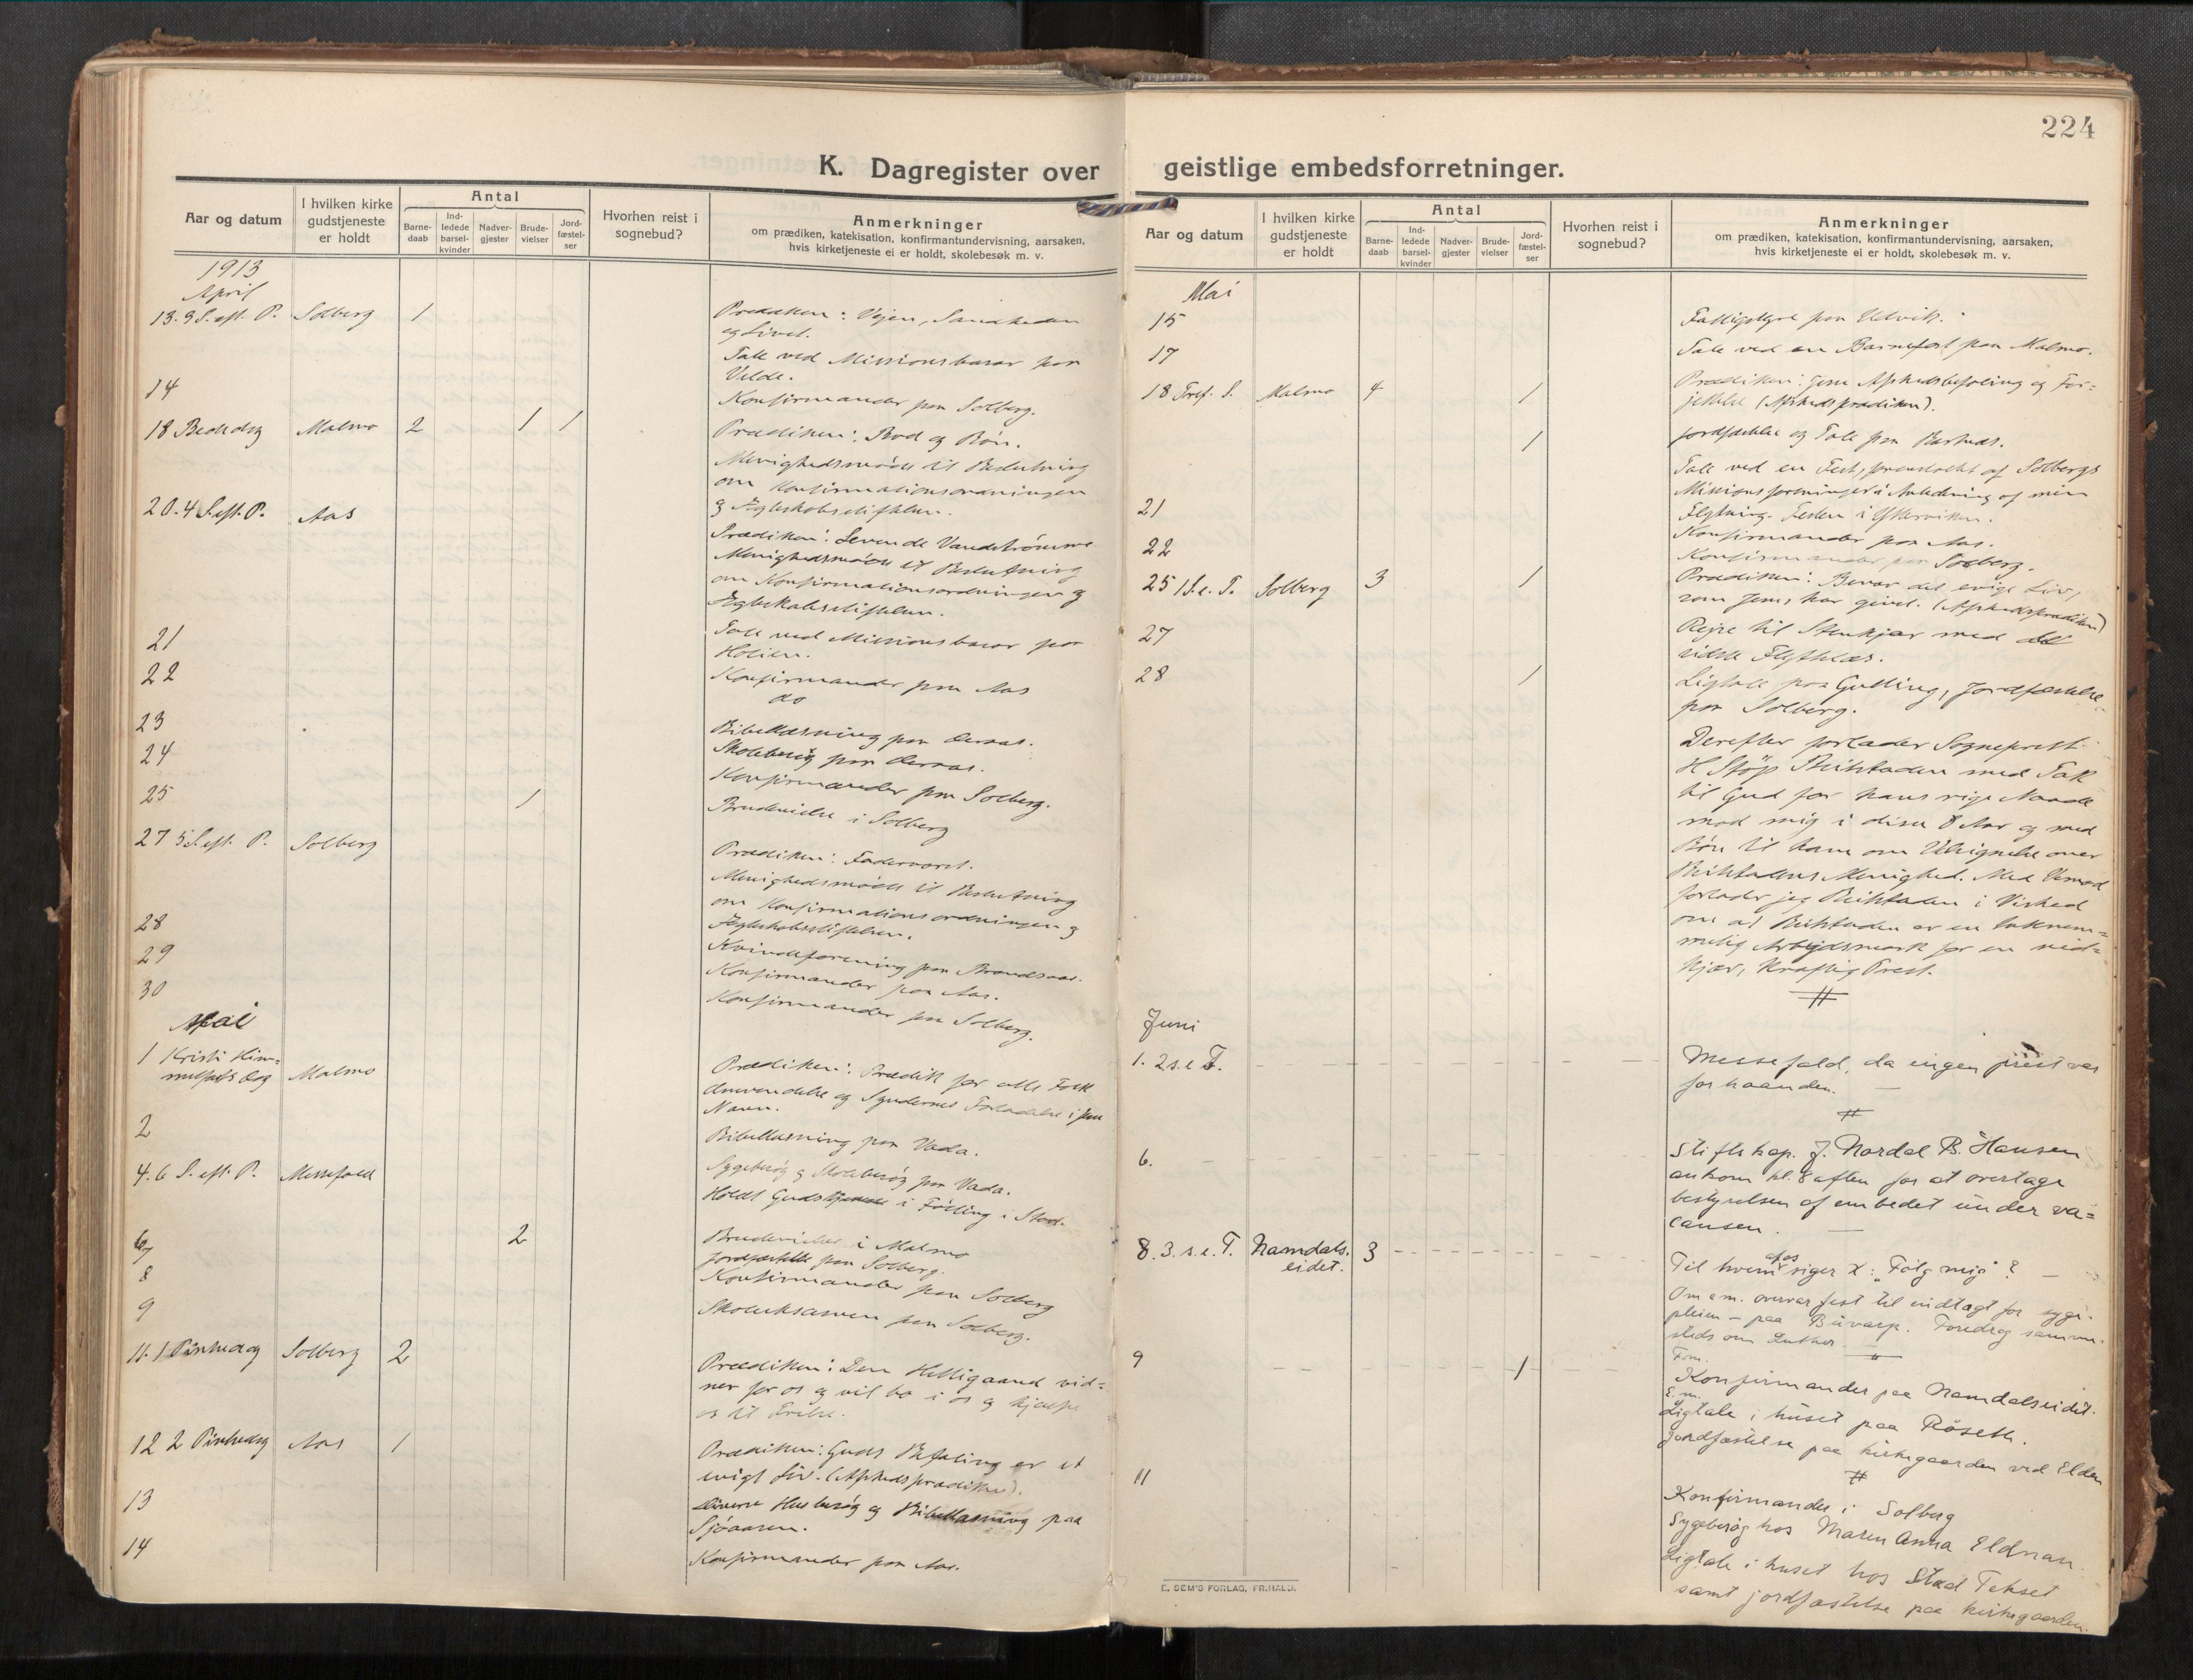 224
K. Dagregister over geistlige embedsforretninger.
Aar og datum
I hvilken kirke gudstjeneste er holdt
Antal
Barnedaab
Indledede barselkvinder
Nadvergjester
Brudevielser
Jordfæstelser
Hvorhen reist i sognebud?
Anmerkninger
om prædiken, katekisation, konfirmantundervisning, aarsaken,
hvis kirketjeneste ei er holdt, skolebesøk m. v.
1913
April
13. 3 S. eft. P. Solberg 1 Prædiken: Vejen, Sandheden
og Livet.
Tale ved Missionsbasar paa
Velde.
14 Konfirmander paa Solberg.
18 Bededag Malmo 2 1 1 Prædiken: Bod og Bøn.
Menighedsmøde til Beslutning
om Konfirmationsordningen
og
20. 4 S. eft. P. Aas Prædiken: Levende Vandstrømme
Menighedsmøde til Beslutning
om Konfirmationsordningen og
21 Tale ved Missionsbasar paa
22 Konfirmander paa Aas
23 do
24 Bibellæsning paa
Skolebesøg paa
25 1 Konfirmander paa Solberg.
Brudevielse i Solberg
27 5 S. eft. P. Solberg Prædiken: Fadervoret.
Menighedsmøde til Beslutning
om Konfirmationsordningen og
28 Kvindeforening paa
29 Konfirmander paa Aas.
30 Konfirmander paa Solberg.
Mai
1 Kristi Him=
melfarts dag Malmo Prædiken: Prædik for alle Folk
Omvendelse og Syndernes Forladelse i
Navn.
2 Bibellæsning paa Vada.
Sygebesøg og Skolebesøg paa Vada.
4. 6 S. eft. P. Messefald Holdt Gudstjeneste i Følling i Stod.
6 2 Brudevielser i Malmo
7 Jordfæstelse paa Solberg.
8 Konfirmander paa Solberg
9 Skoleeksamen paa Solberg.
11. 1 Pinsedag Solberg 2 Prædiken: Den Helligaand vid=
ner for os og vil bo i os og hjælpe
os til Frelse.
12 2 Pinsedag Aas 1 Prædiken: Guds Befaling er et
evigt Liv. (Afskedsprædiken).
13 Diverse Husbesøg og Bibellæsning paa
Sjøaasen.
14 Konfirmander paa Aas.
Aar og datum
I hvilken kirke gudstjeneste er holdt
Antal
Barnedaab
Indledede barselkvinder
Nadvergjester
Brudevielser
Jordfæstelser
Hvorhen reist i sognebud?
Anmerkninger
om prædiken, katekisation, konfirmantundervisning, aarsaken,
hvis kirketjeneste ei er holdt, skolebesøk m. v.
Mai
15 Fattigstyre paa Utvik.
17 Tale ved en Barnefest paa Malmo.
18 Tref. S. Malmo 4 1 Prædiken: Jesu Afskedsbefaling og For=
jættelse (Afskedsprædiken).
1 Jordfæstelse og Tale paa
Tale ved en Fest, foranstaltet af Solbergs
Missionsforeninger i Anledning af min
21 Flytning. Festen i
Konfirmander paa Aas.
22 Konfirmander paa Solberg.
25 1 S. e. T. Solberg 3 1 Prædiken: Bevar det evige Liv,
som Jesus har givet. (Afskedsprædiken)
27 Rejse til Stenkjær med det
sidste Flyttelæs.
28 1 Ligtale paa Gulling, Jordfæstelse
paa Solberg.
Derefter forlader Sogneprest
H Støp Beitstaden med Tak
til Gud for hans rige Naade
mod mig i disse 8 Aar og med
Bøn til ham om Velsignelse over
Beitstadens Menighed. Med Vemod
forlader jeg Beitstaden i Vished
om at Beitstaden er en taknem=
melig Arbejdsmark for en nid=
kjær, kraftig Prest.
Juni
1. 2 s. e T. Messefald, da ingen prest var
for haanden.
6. Stiftskap. J. Nordal B. Hansen
ankom kl. 8 aften for at overtage
bestyrelsen af embedet under va=
cansen.
8. 3. s. e. T. Namdals.
eidet. 3 Til hvem af os siger X: "Følg mig"?
Om e.m. overvar fest til indtægt for syge=
pleien - paa Buvarp. Foredrag samme=
steds om Luther.
9 1 Fm.
Konfirmander paa Namdalseidet.
E.m.
Ligtale i huset paa Røseth.
Jordfæstelse paa kirkegaarden ved Elden
11 Konfirmander i Solberg
Sygebesøg hos Maren Anna Eldnan
Ligtale i huset hos Stad Tekset
samt jordfæstelse paa kirkegaarden.
E. SEM'S FORLAG, FR.HALD.